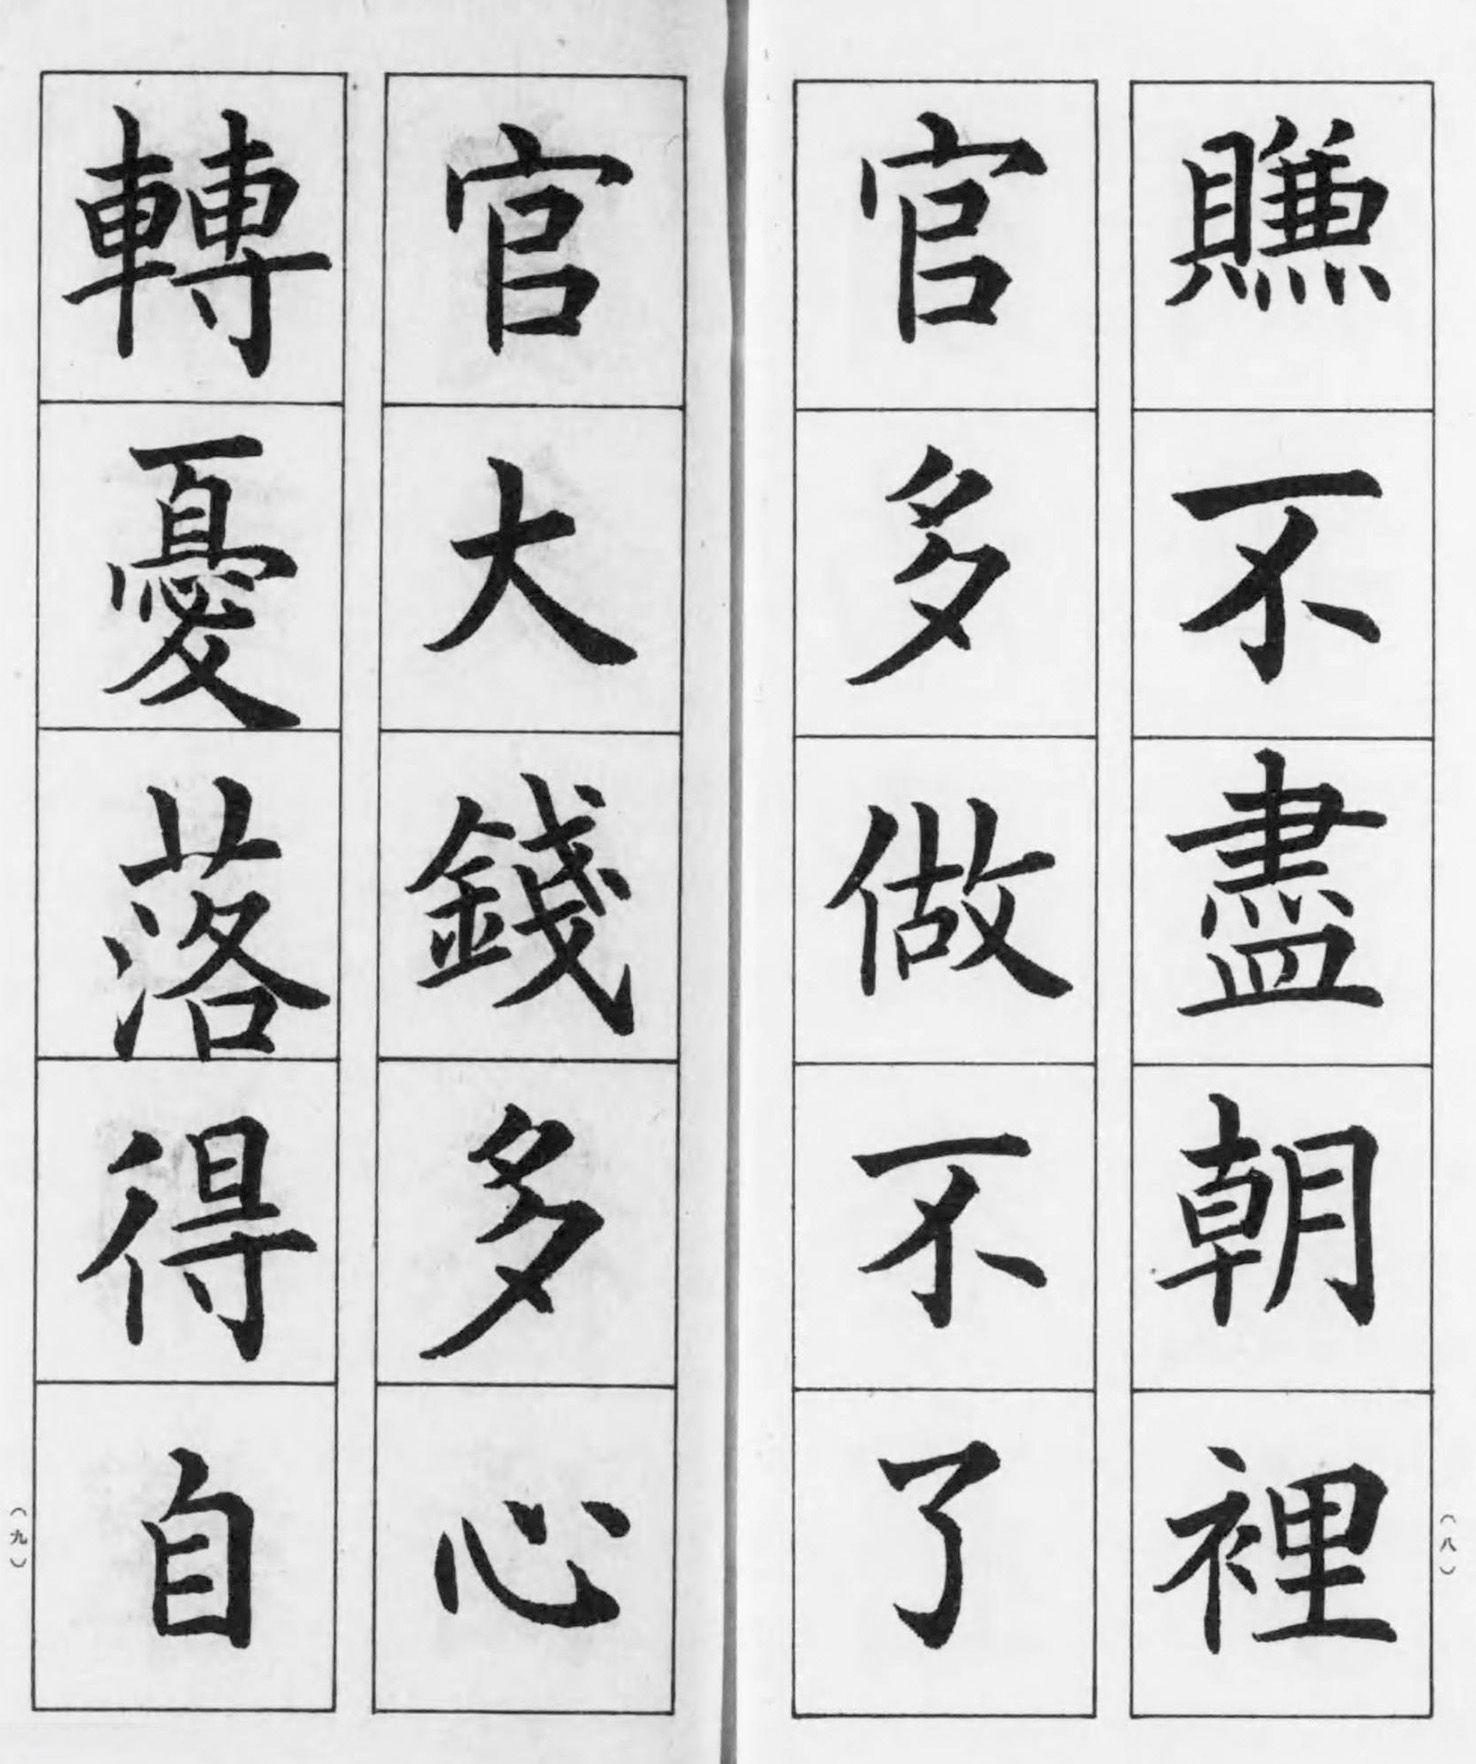 賺不盡朝裡
官多做不了
官大錢多心
轉憂落得自
(八)
(九)